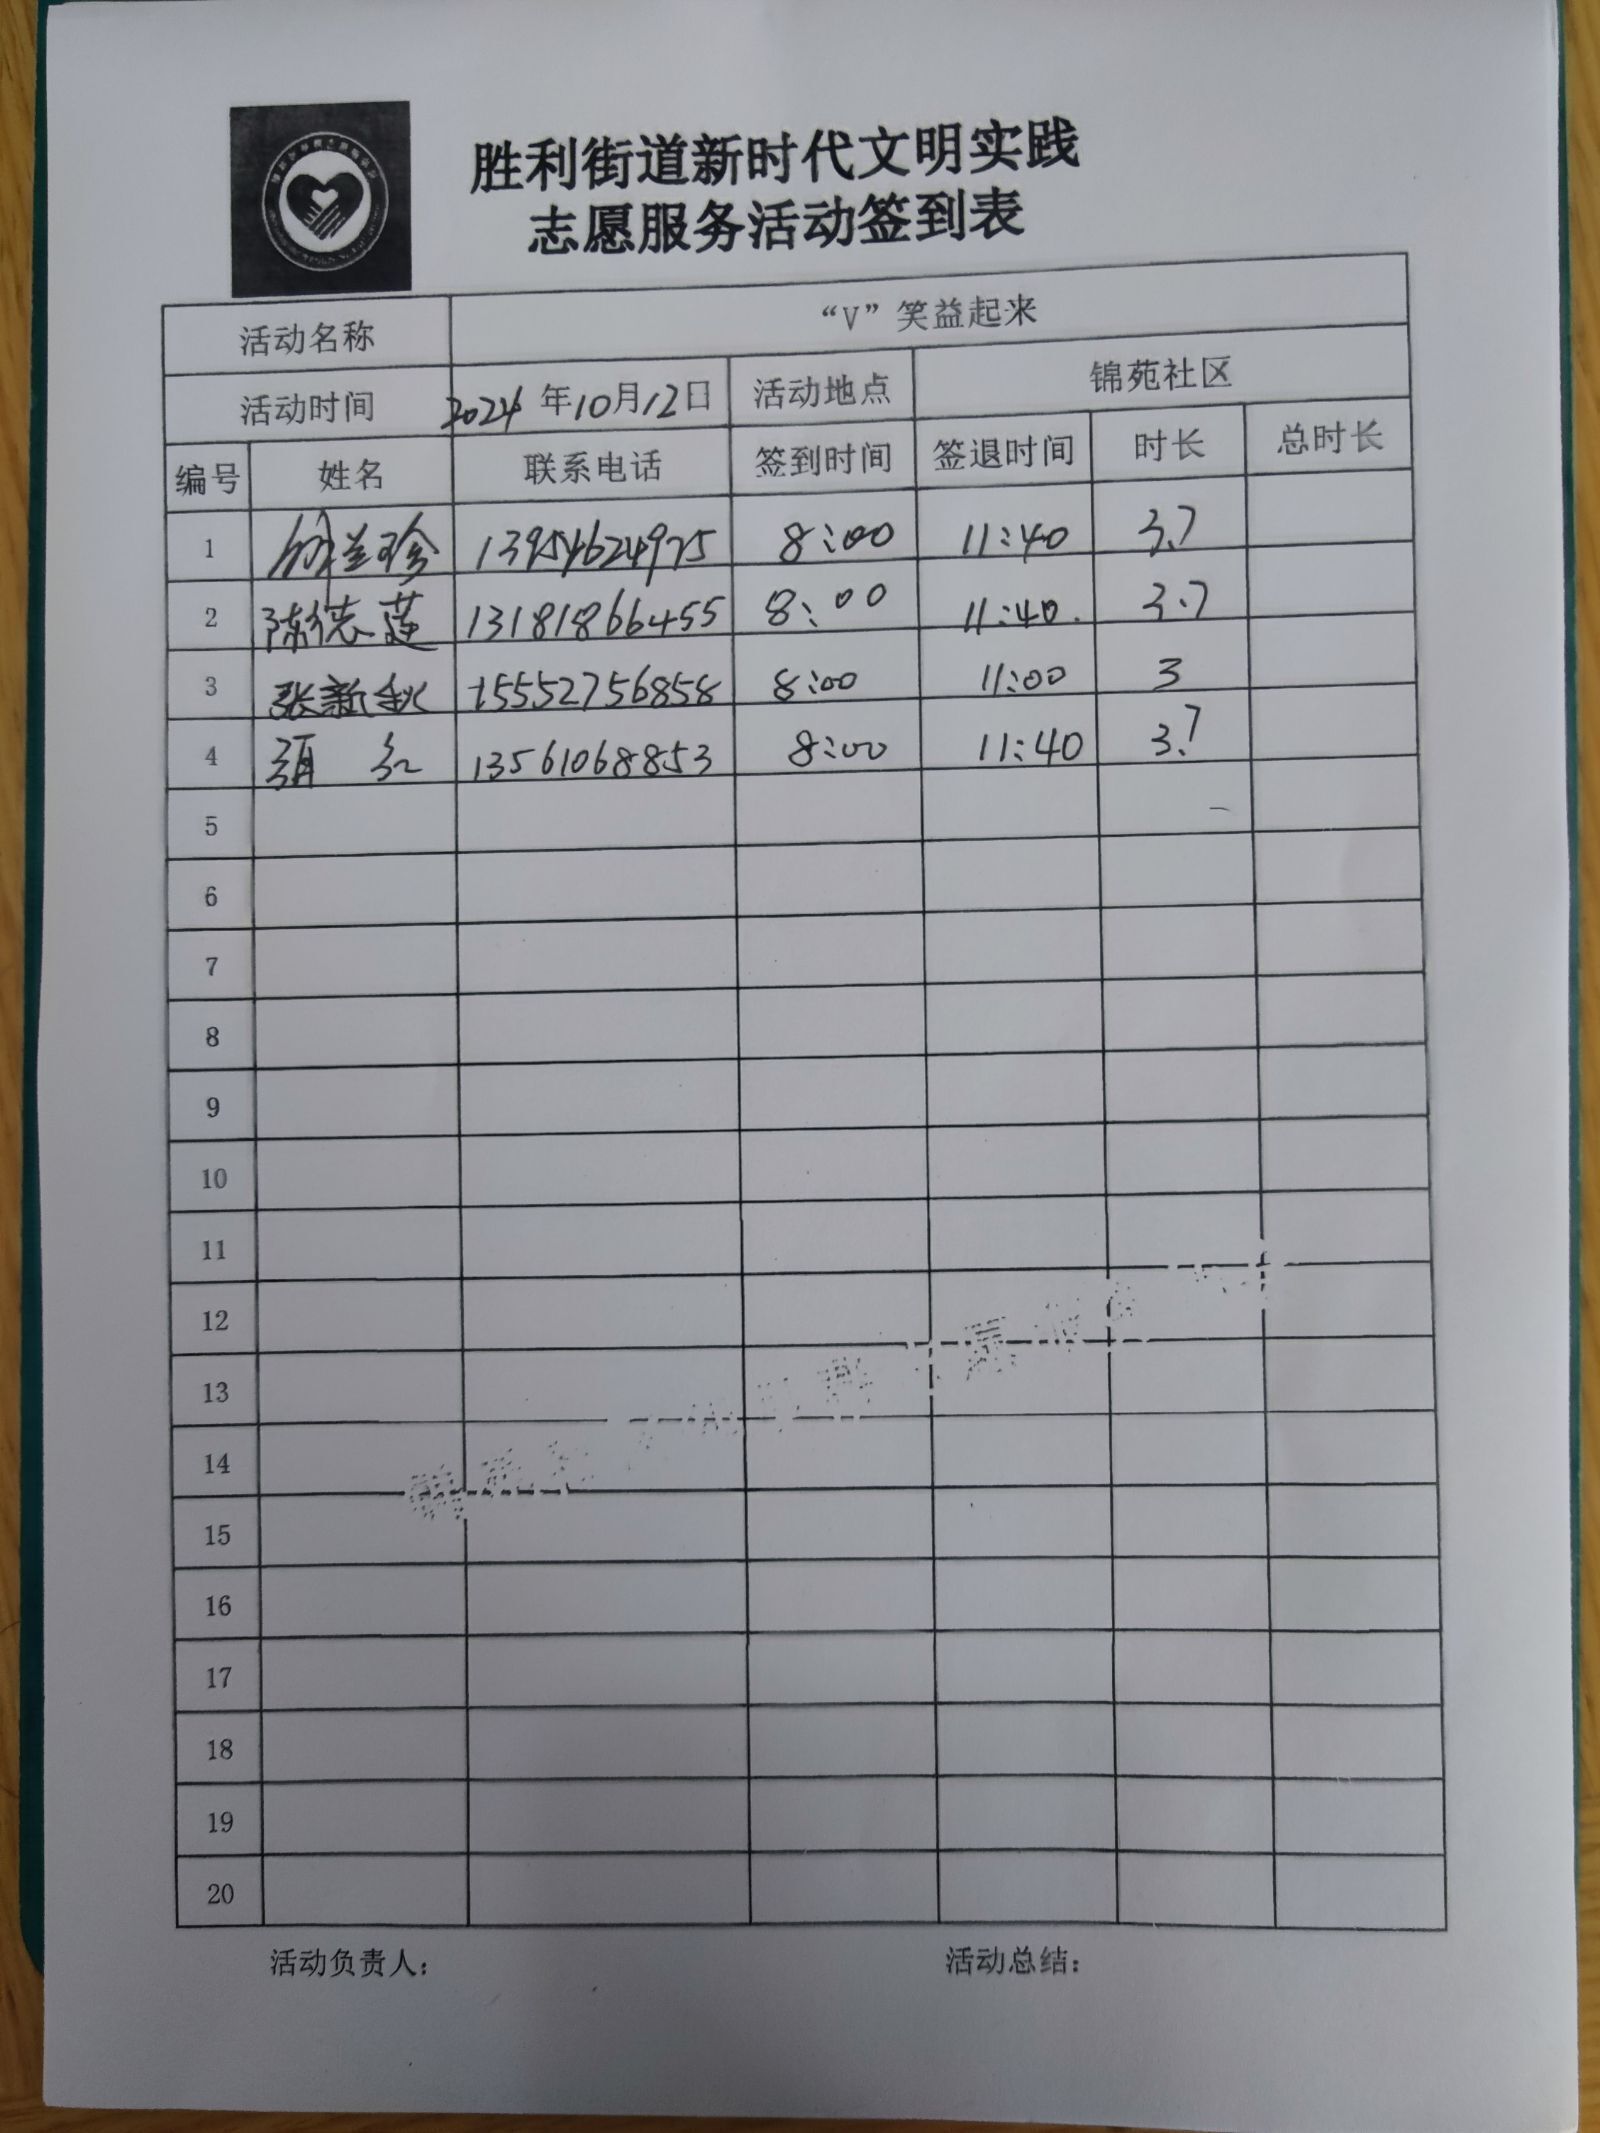 胜利街道新时代文明实践
志愿服务活动签到表
活动名称 “V”笑益起来
活动时间 2024年10月12日 活动地点 锦苑社区
编号 姓名 联系电话 签到时间 签退时间 时长 总时长
1 兰珍 8:00 11:40 3.7
2 陈德莲 13181866455 8:00 11:40. 3.7
3 张新秋 15552756858 8:00 11:00 3
4 红 13561068853 8:00 11:40 3.7
5
6
7
8
9
10
11
12
13
14
15
16
17
18
19
20
活动负责人： 活动总结：